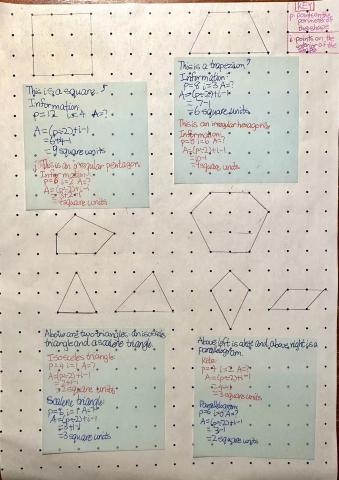 KEY
p points on the
perimeter of
the shape
i points on the
interior of the
This is a square.
Information
p=12 i=4 A=?
A=(p÷2)+i-1
=6+4-1
=9 square units
This is an irregular pentagon.
Information:
A=?
A=(p÷2)+i-1
square units
This is a trapezium?
Information:
p=8 i=3 A=?
A=(p÷2)+i-1
=7-1
=6 square units
This is an irregular hexagon.
Information:
p=8 i=6 A=?
A=(p÷2)+i-1
=10-1
=9 square units
Above are two triangles, an isosceles
triangle and a scalene triangle.
Isosceles triangle:
p=4 i=1 A=?
A=(p÷2)+i-1
=2+1-1
=2 square units
Scalene triangle:
A=?
A=(p÷2)+i-1
=3+1-1
=3 square units
Above left is a kite and above right is a
parallelogram.
Kite:
p=4 i=2 A=?
A=(p÷2)+i-1
=3 square units
Parallelogram:
p=6 i=0 A=?
A=(p÷2)+i-1
=3-1
=2 square units